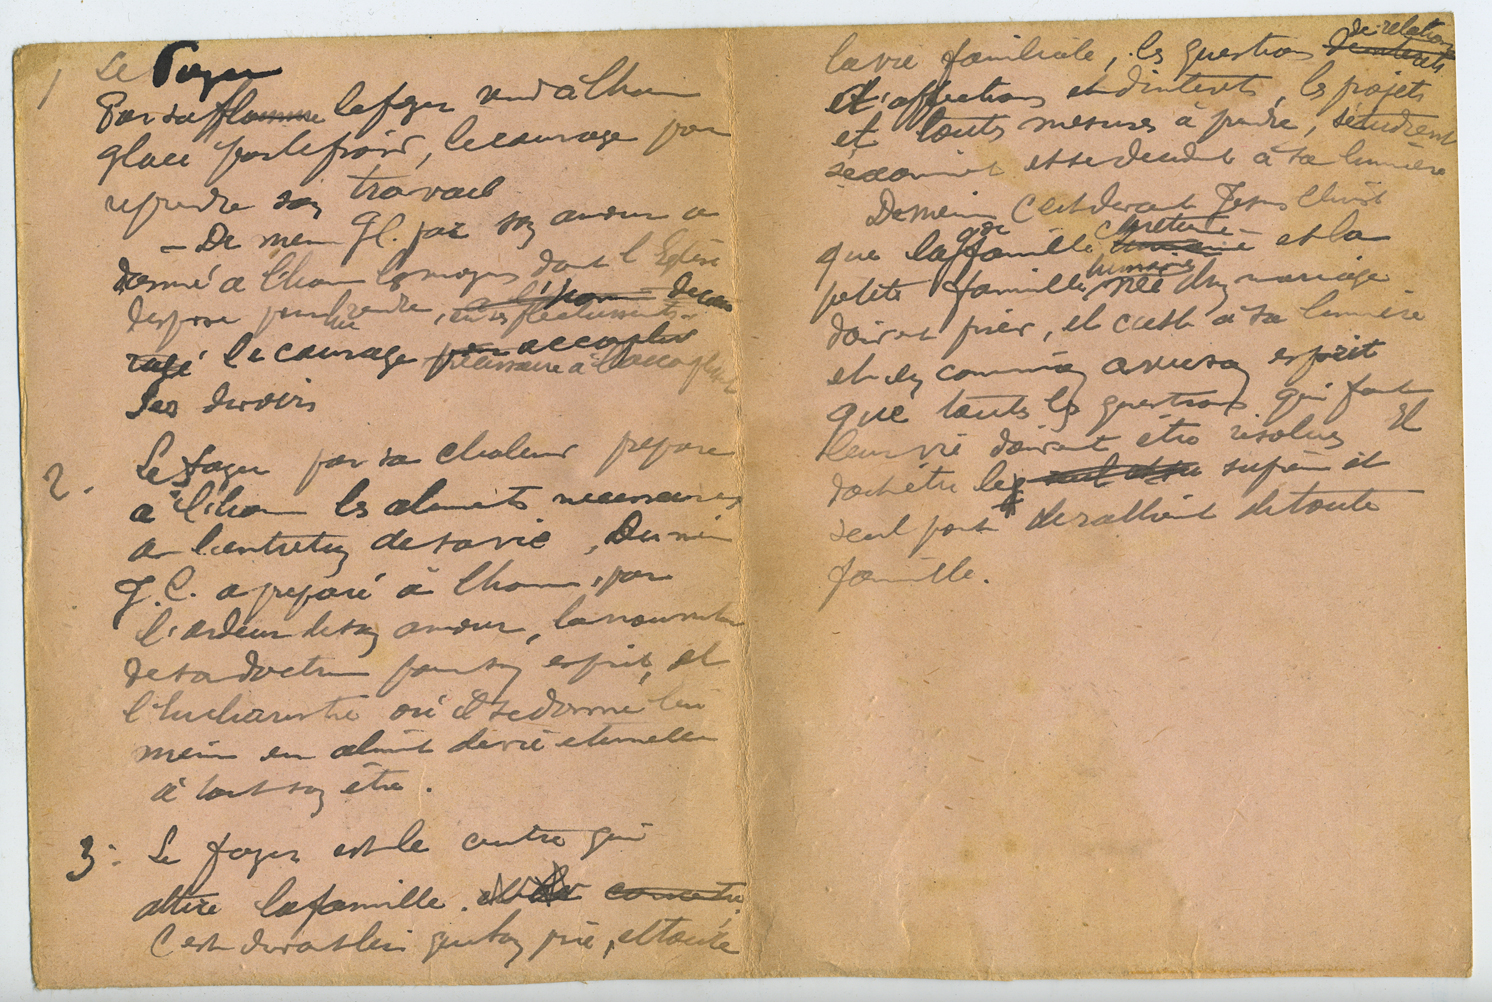 1 Le Foyer
Par sa flamme le foyer rend à l'hom
glacé par le froid, le courage pour
reprendre son travail
- De mem J.C. par son amour a
donné à l'hom les moyens dont l'Eglise
dispose pour lui rendre, à l'homme decou
ragé le courage pour accomplir nécessaire à l'accomplir
ses devoirs
2. Le foyer par sa chaleur prepare
à l'hom les aliments necessaires
a l'entretien de sa vie, De mem
J.C. a preparé à l'hom, par
l'ardeur de son amour, la nourritu
de sa doctrin pour son esprit, et
l'Eucharistie où il se donne lui
mem en alimt de vie eternelle
à tout son être.
3. Le foyer est le centre qui
attire la famille. concentre
C'est devant lui qu'on prie, et toute
la vie familiale, les questions de relations d'interets
et d'affections et d'interets, les projets
et toutes mesures à prendre, s'étudient
s'examinent et se decident à sa lumière
De mem c'est devant Jesus Christ
que la gde famille chretienne et la
petite famille humaine née du mariage
doivent prier, et c'est à sa lumière
et en communion avec son esprit
que toutes les questions qui font
leur vie doivent être resolues Il
doit être le seul suprem et
seul point de ralliemt de toute
famille.